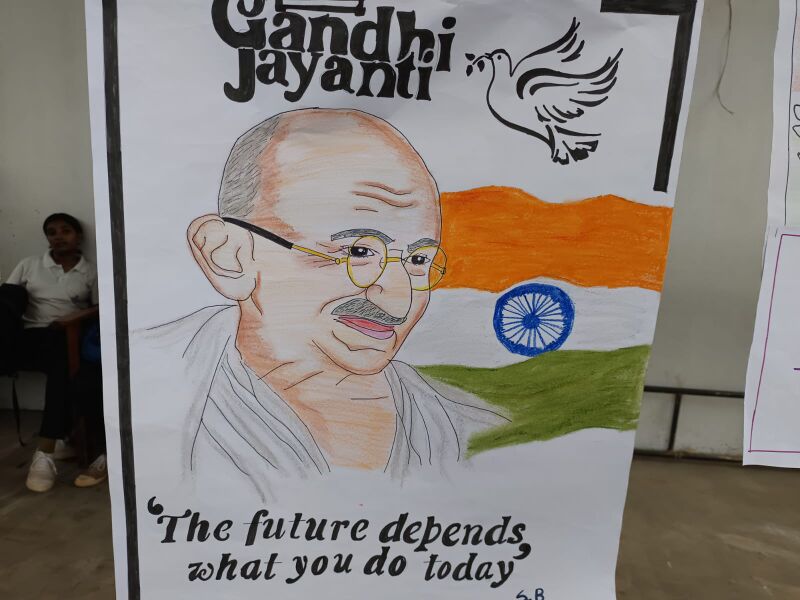 Gandhi
Jayanti
‘The future depends
what you do today’
S.B